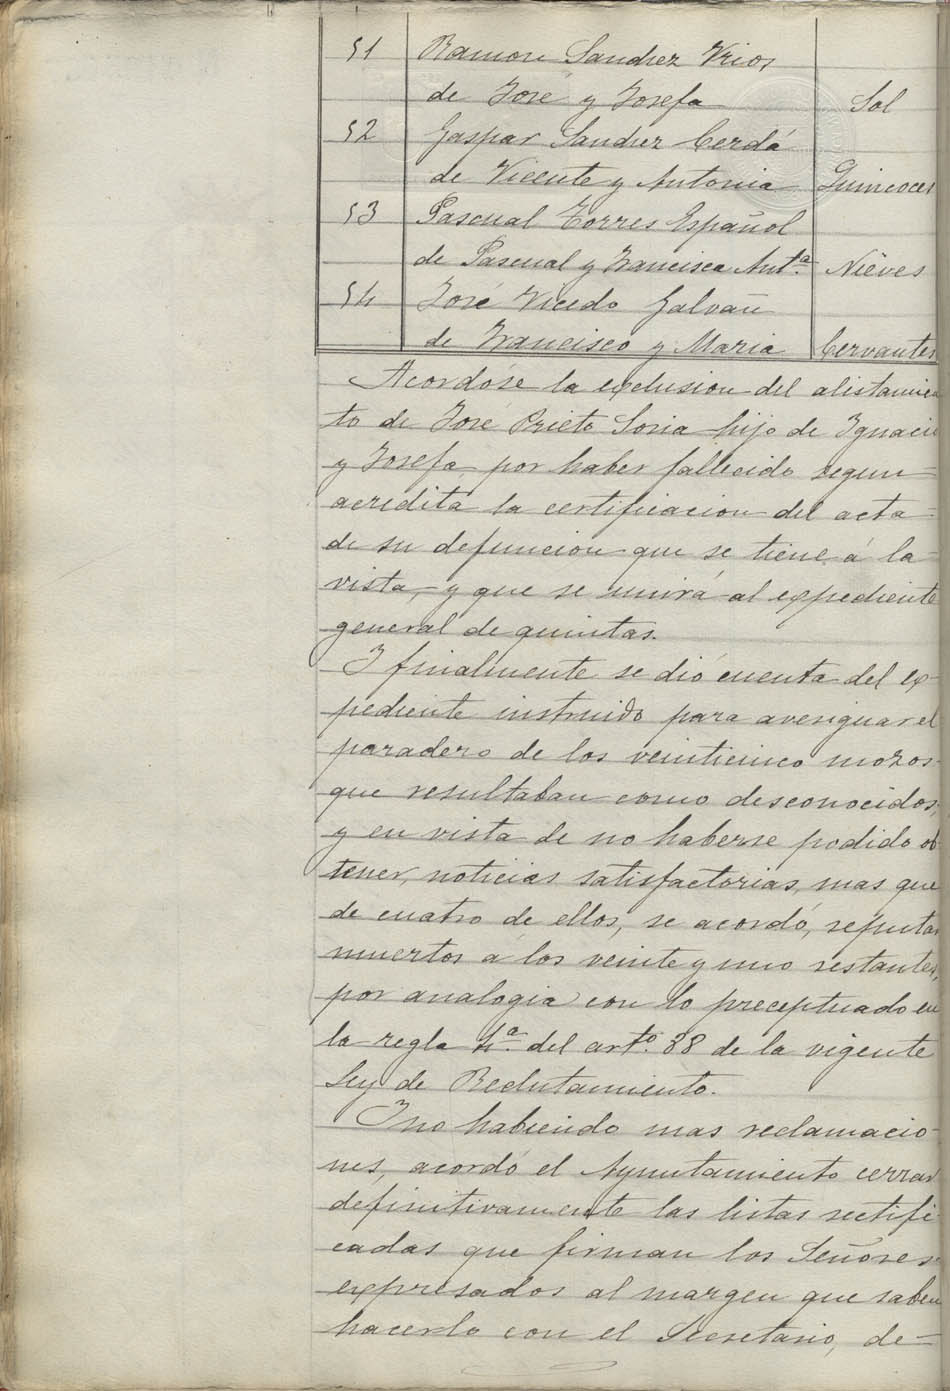 51 Ramon Sanchez Vrios
de José y Josefa Sol
52 Gaspar Sanchez Cerdá
de Vicente y Antonia Quincoces
53 Pascual Torres Español
de Pascual y Francisca Ant.ª Nieves
54 José Vicedo Galvañ
de Francisco y Maria Cervantes
Acordóse la exclusion del alistamien
to de José Prieto Soria hijo de Ignacio
y Josefa por haber fallecido segun
acredita la certificacion del acta
de su defuncion que se tiene á la
vista, y que se unirá al expediente
general de quintas.
Y finalmente se dió cuenta del ex-
pediente instruido para averiguar el
paradero de los veinticinco mozos
que resultaban como desconocidos,
y en vista de no haberse podido ob
tener, noticias satisfactorias, mas que
de cuatro de ellos, se acordó, reputar
muertos á los veinte y uno restantes,
por analogia con lo preceptuado en
la regla 4.ª del art.º 88 de la vigente
Ley de Reclutamiento.
Y no habiendo mas reclamacio-
nes, acordó el Ayuntamiento cerrar
definitivamente las listas rectifi-
cadas que firman los Señores
expresados al margen que saben
hacerlo con el Secretario, de-